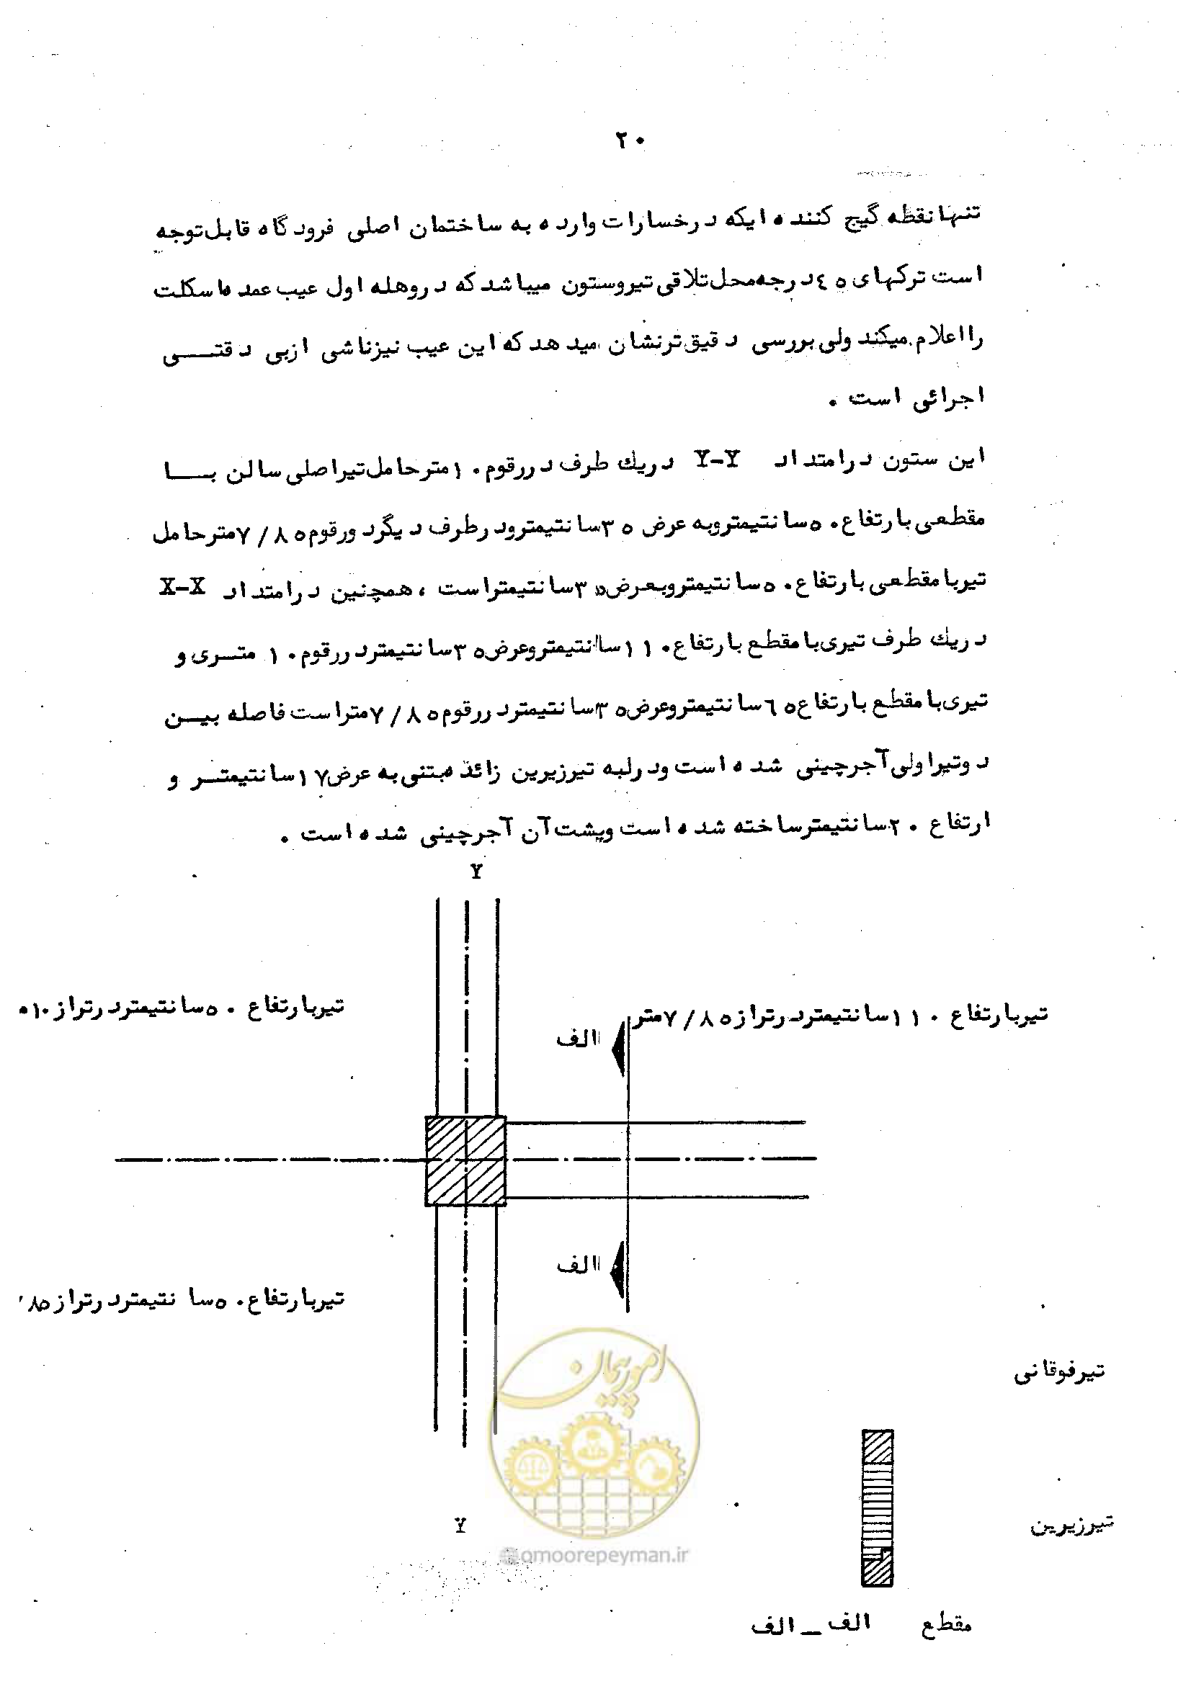 ۲۰
تنها نقطه گیج کننده ایکه در خسارات وارده به ساختمان اصلی فرودگاه قابل توجه
است ترکهای ۴۵ درجه محل تلاقی تیر و ستون میباشد که در وهله اول عیب عمده اسکلت
را اعلام میکند ولی بررسی دقیق تر نشان میدهد که این عیب نیز ناشی از بی دقتی
اجرائی است .
این ستون در امتداد Y-Y در یک طرف در رقوم ۱۰ متر حامل تیر اصلی سالن با
مقطعی با رتفاع ۵۰ سانتیمتر و به عرض ۳۵ سانتیمتر و در طرف دیگر د ورقوم ۷/۸۵ متر حامل
تیر با مقطعی با رتفاع ۵۰ سانتیمتر و بعرض ۳۵ سانتیمتر است ، همچنین در امتداد X-X
در یک طرف تیری با مقطع با رتفاع ۱۱۰ سانتیمتر و عرض ۳۵ سانتیمتر در رقوم ۱۰ متری و
تیری با مقطع با رتفاع ۶۵ سانتیمتر و عرض ۳۵ سانتیمتر در رقوم ۷/۸۵ متر است فاصله بین
دو تیر اولی آجرچینی شده است و در لبه تیر زیرین زائده مبتنی به عرض ۱۷ سانتیمتر و
ارتفاع ۲۰ سانتیمتر ساخته شده است و پشت آن آجرچینی شده است .
Y
تیر با رتفاع ۵۰ سانتیمتر در تراز ۱۰
تیر با رتفاع ۱۱۰ سانتیمتر در تراز ۷/۸۵ متر
الف
الف
تیر با رتفاع ۵۰ سانتیمتر در تراز ۸۵
تیر فوقانی
امور پیمان
Y
تیر زیرین
@omoorepeyman.ir
مقطع الف – الف